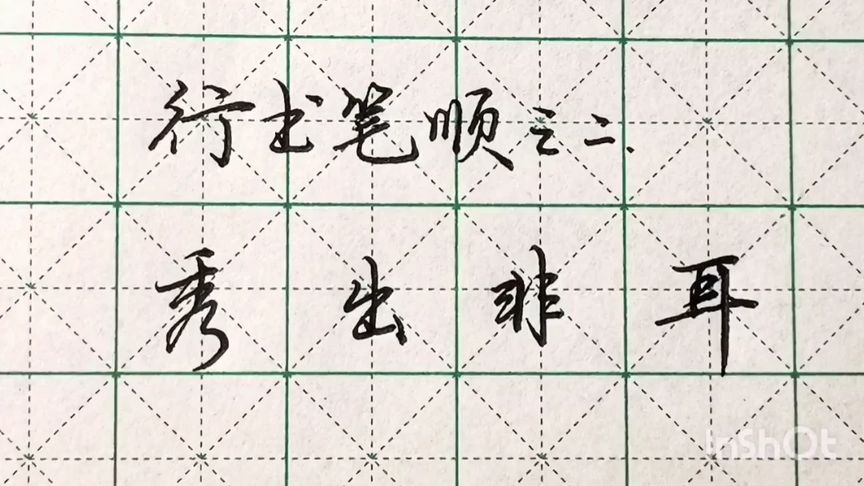 行书笔顺之二、
秀出非耳
InShOt